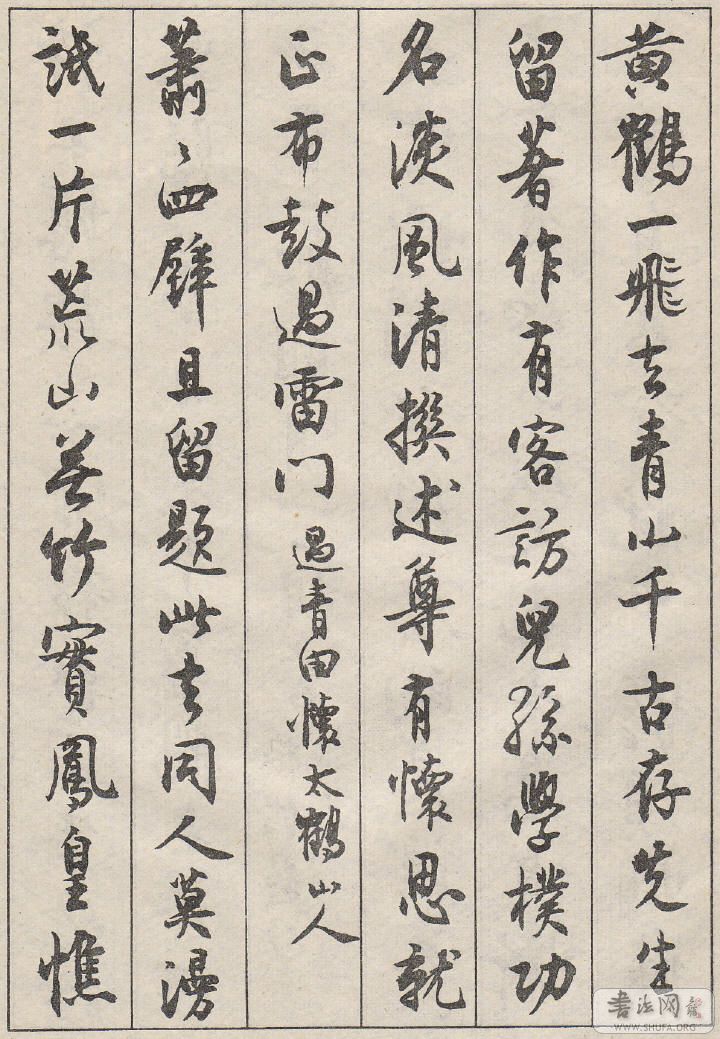 黄鶴一飛去青山千古存先生
留著作有客訪兒孫學樸功
名淡風清撰述尊有懷思就
正布鼓過雷門 過青田懷太鶴山人
蕭〻四壁且留題此去同人莫漫
詆一片荒山無竹實鳳皇憔
书法网
WWW.SHUFA.ORG